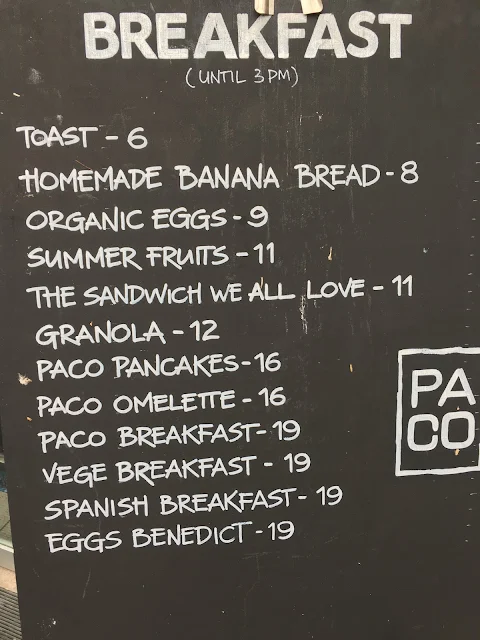 BREAKFAST
(UNTIL 3PM)
TOAST - 6
HOMEMADE BANANA BREAD - 8
ORGANIC EGGS - 9
SUMMER FRUITS - 11
THE SANDWICH WE ALL LOVE - 11
GRANOLA - 12
PACO PANCAKES - 16
PACO OMELETTE - 16
PACO BREAKFAST - 19
VEGE BREAKFAST - 19
SPANISH BREAKFAST - 19
EGGS BENEDICT - 19
PA
CO